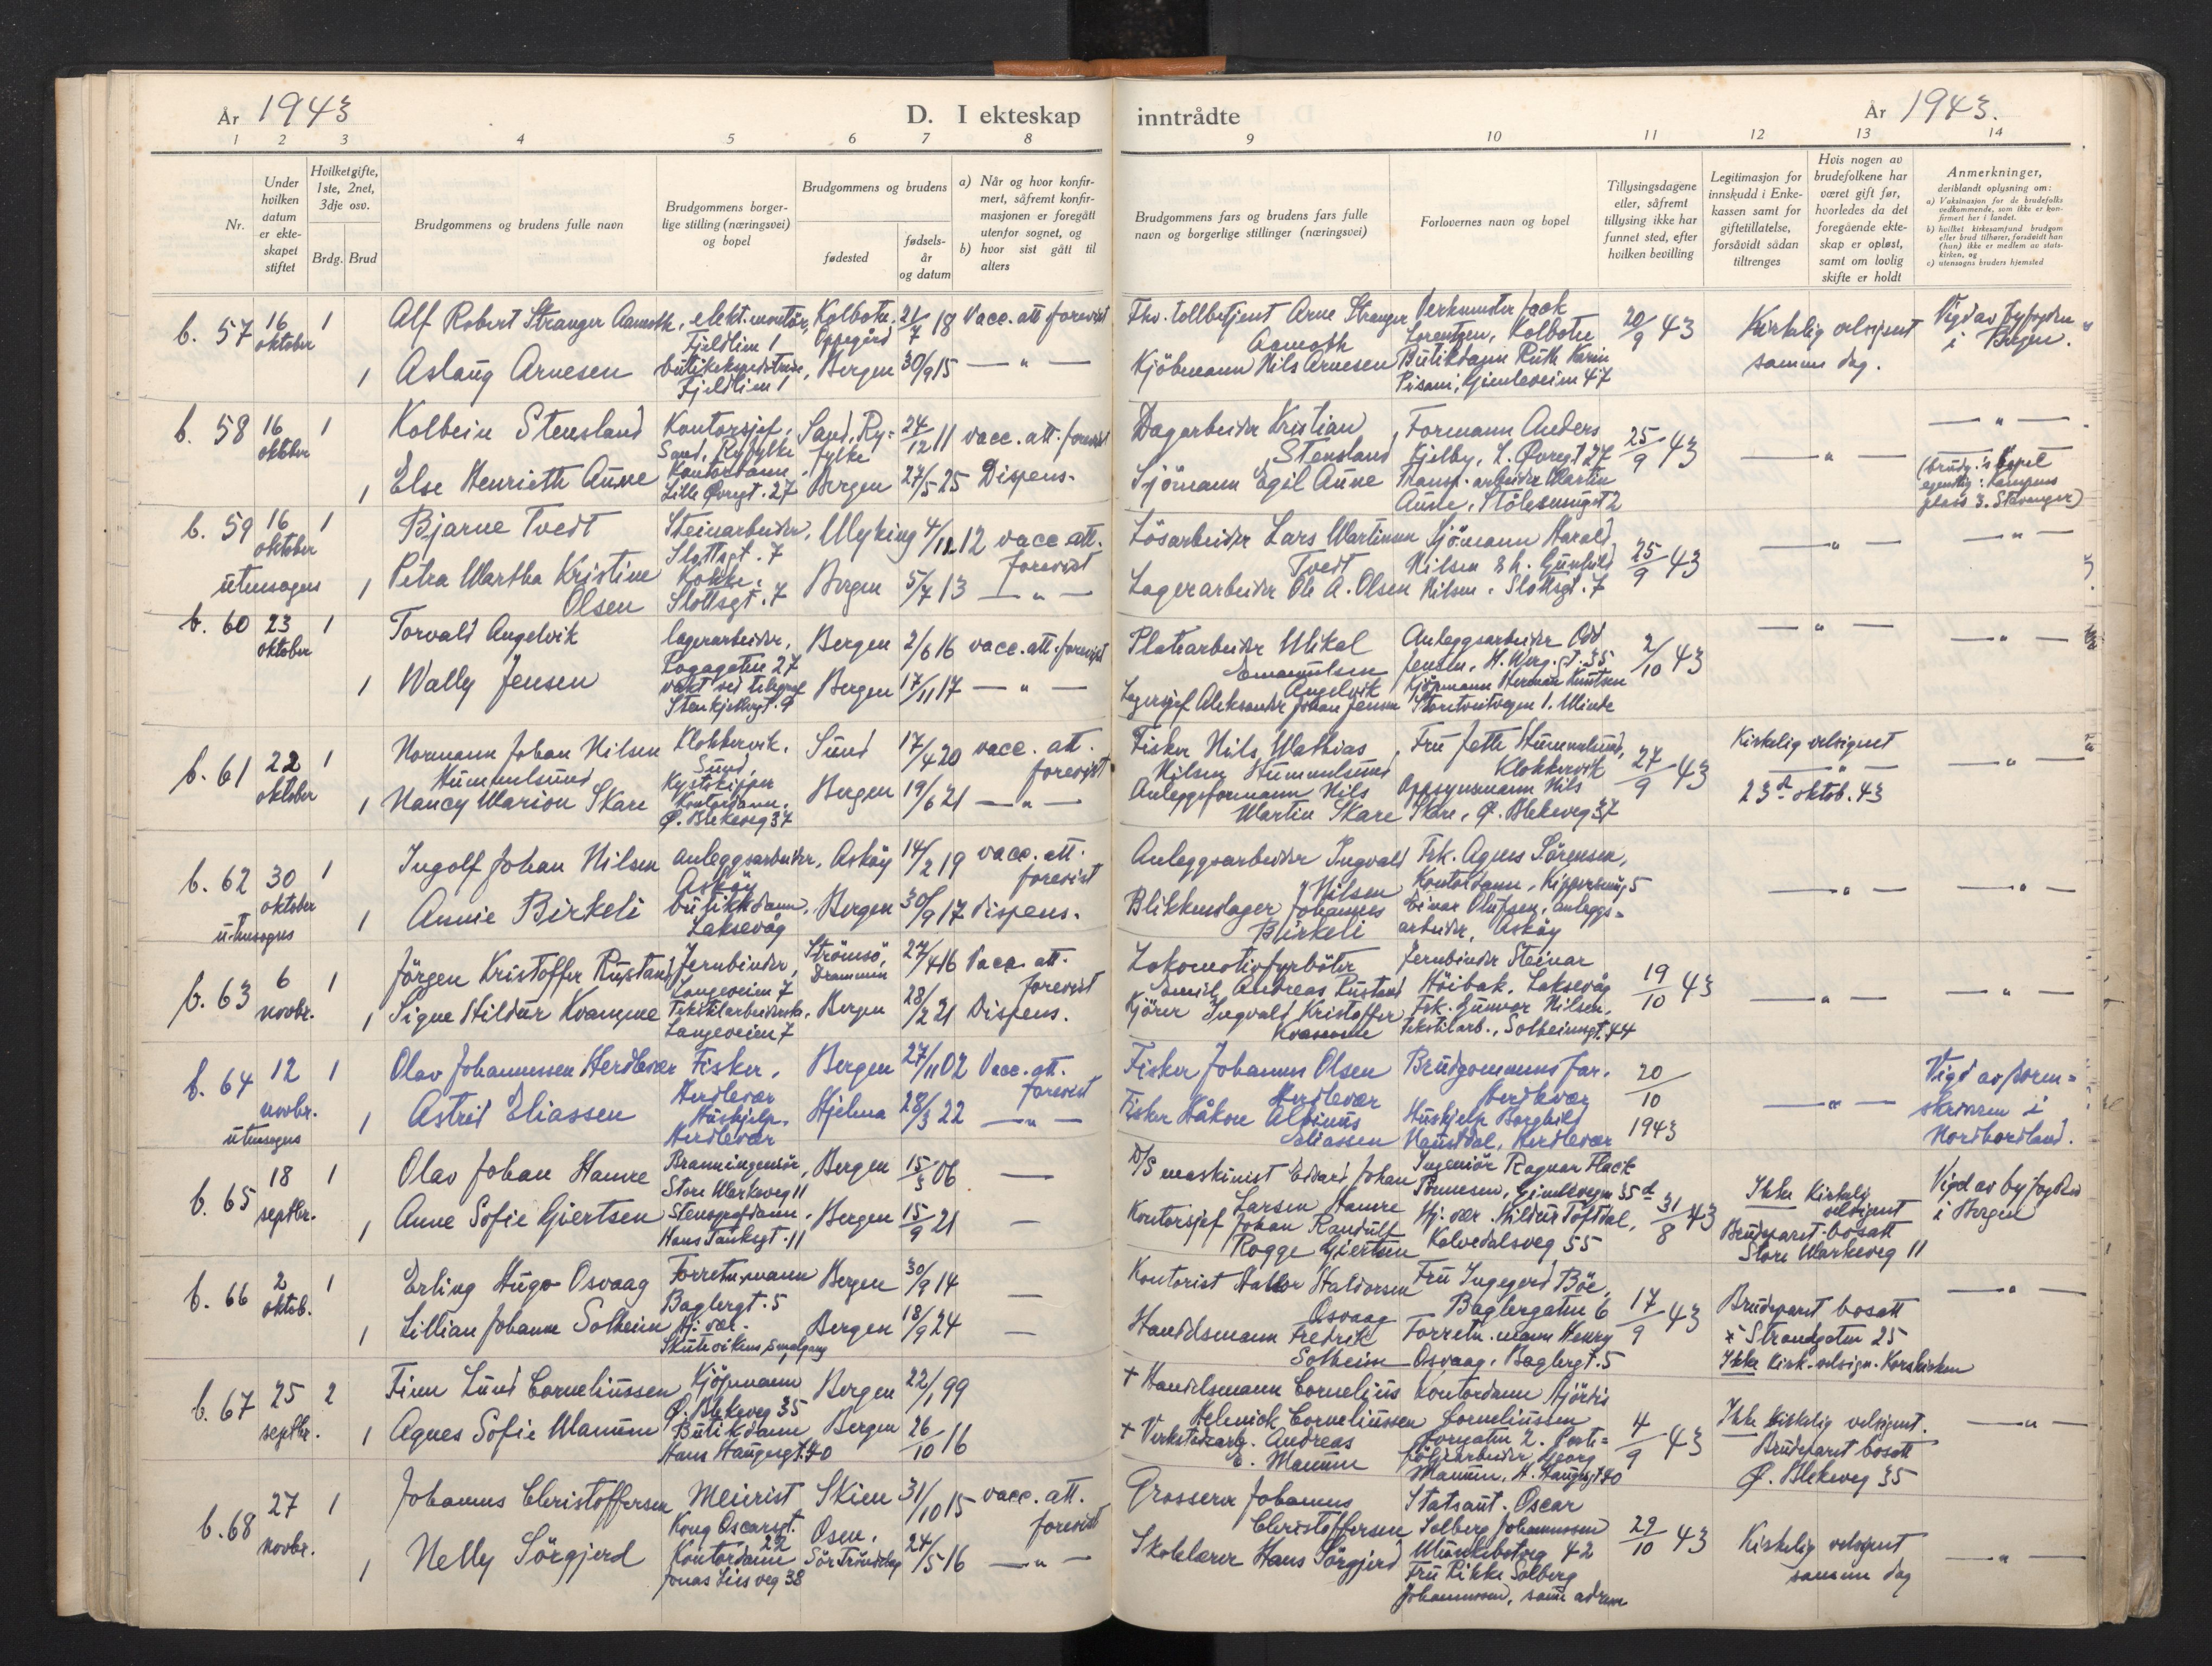 År 1943
D. I ekteskap inntrådte
År 1943.
1 2 3 4 5 6 7 8 9 10 11 12 13 14
Nr.
Under hvilken datum er ekteskapet stiftet
Hvilket gifte, 1ste, 2net, 3dje osv.
Brdg. Brud
Brudgommens og brudens fulle navn
Brudgommens borgerlige stilling (næringsvei) og bopel
Brudgommens og brudens
fødested
fødselsår og datum
a) Når og hvor konfirmert, såfremt konfirmasjonen er foregått utenfor sognet, og
b) hvor sist gått til alters
Brudgommens fars og brudens fars fulle navn og borgerlige stillinger (næringsvei)
Forlovernes navn og bopel
Tillysingsdagene eller, såfremt tillysing ikke har funnet sted, efter hvilken bevilling
Legitimasjon for innskudd i Enkekassen samt for giftetillatelse, forsåvidt sådan tiltrenges
Hvis nogen av brudefolkene har været gift før, hvorledes da det foregående ekteskap er opløst, samt om lovlig skifte er holdt
Anmerkninger,
deriblandt oplysning om:
a) Vaksinasjon for de brudefolks vedkommende, som ikke er konfirmert her i landet.
b) hvilket kirkesamfund brudgom eller brud tilhører, forsåvidt han (hun) ikke er medlem av statskirken, og
c) utensogns bruders hjemsted
b. 57 16 oktober 1
Alf Robert Stranger Aamoth, elekt. montör, Fjeldlien 1
Kolbotn, Oppegård 21/7 18 Vacc. att. forevist
Fhv. tollbetjent Arne Stranger Aamoth
Lorentzen, Kolbotn
20/9 43
Kirkelig velsignet samme dag.
Vigd av byfogden i Bergen.
1 Aslaug Arnesen
Fjeldlien 1
Bergen 30/9 15 — " —
Kjöbmann Nils Arnesen
Butikkdame Ruth Karin Pisani, Gimleveien 47
b. 58 16 oktober 1
Kolbein Stensland
Kontorsjef, Sand, Ryfylke
Sand, Ryfylke 24/12 11 vacc. att. forevist
Dagarbeider Kristian Stensland
Formann Anders Kjelby, L. Øvregt 27
25/9 43
— " —
— " —
1 Else Henrieth Aune
Kontordame, Lille Øvregt. 27
Bergen 27/5 25 Dispens.
Sjömann Egil Aune
Transp. arbeider Martin Aune, Stölesmuget 2
(brudg.'s bopel egentlig: Kampens plass 3. Stavanger)
b. 59 16 oktober 1
utensogns
Bjarne Tvedt
Steinarbeider, Slottsgt. 7
Myking 4/12 12 vacc. att. forevist
Lösarbeider Lars Martinus Tvedt
Sjömann Harald Nilsen & h. Gunhild Nilsen, Slottsgt. 7
25/9 43
— " —
— " —
1 Petra Martha Kristine Olsen
Kokke, Slottsgt. 7
Bergen 5/7 13 — " —
Lagerarbeider Ole A. Olsen
b. 60 23 oktober 1
Torvald Angelvik
lagerarbeider,
Bergen 2/6 16 vacc. att. forevist
Platearbeider Mikal Emanuelsen Angelvik
Anleggsarbeider Odd Jensen, H. Werg. gt. 35
2/10 43
— " —
— " —
1 Wally Jensen
vakt ved telegraf
Bergen 17/11 17 — " —
Lagersjef Aleksander Johan Jensen
Kjöpmann Herman Knutsen
Storetveitvegen 1. Minde
b. 61 22 oktober 1
Normann Johan Nilsen Hummelsund
Klokkervik, Sund
Kystskipper
Sund 17/4 20 vacc. att. forevist
Fisker Nils Mathias Nilsen Hummelsund
Fru Jette Hummelsund, Klokkervik
27/9 43
Kirkelig velsignet
— " —
23d oktob. 43
— " —
1 Nancy Marion Skare
Kontordame, Ø. Blekeveg 37
Bergen 19/6 21 — " —
Anleggsformann Nils Martin Skare
Oppsynsmann Nils Skare, Ø. Blekeveg 37
b. 62 30 oktober 1
utensogns
Ingolf Johan Nilsen
anleggsarbeider, Asköy
Asköy 14/2 19 vacc. att. forevist
Anleggsarbeider Ingvald Nilsen
Frk. Agnes Sörensen, Kontordame,
— " —
— " —
1 Annie Birkeli
butikkdame, Laksevåg
Bergen 30/9 17 dispens.
Blikkenslager Johannes Birkeli
Einar Olufsen, anleggsarbeider, Asköy
b. 63 6 novbr. 1
Jörgen Kristoffer Rustand
Jernbinder, Langeveien 7
Strömsö, Drammen 27/4 16 Vacc. att. forevist
Lokomotivfyrböter Emil Andreas Rustand
Jernbinder Steinar Höibak, Laksevåg
19/10 43
— " —
— " —
1 Signe Hildur Kvamme
Tekstilarbeiderske, Langeveien 7
Bergen 28/2 21 Dispens.
Kjörer Ingvald Kristoffer Kvamme
Frk. Gunvor Nilsen, Tekstilarb., Solheimsgt. 44
b. 64 12 novbr. 1
utensogns
Olav Johannessen Herdlevær
Fisker, Herdlevær
Bergen 27/11 02 Vacc. att. forevist
Fisker Johannes Olsen Herdlevær
Brudgommens far, Herdlevær
20/10 1943
— " —
Vigd av sorenskriveren i Nordhordland.
1 Astrid Eliassen
Hushjelp, Herdlevær
Hjelma 28/3 22 — " —
Fisker Håkon Albinus Eliassen
Hushjelp Borghild Naustdal, Herdlevær
b. 65 18 septbr. 1
Olav Johan Hamre
Branningeniör, Store Markeveg 11
Bergen 15/3 06 —
D/S maskinist Edvard Johan Larsen Hamre
Ingeniör Ragnar Flack Tönnesen, Gimlevegen 35d
31/8 43
Ikke Kirkelig velsignet
Brudeparet bosatt Store Markeveg 11
Vigd av byfogden i Bergen
1 Anne Sofie Giertsen
Stenografdame, Hans Tanksgt. 11
Bergen 15/9 21 —
Kontorsjef Johan Randulf Rogge Giertsen
Hj. vær. Hildur Toftdal, Kalvedalsveg 55
b. 66 2 oktob. 1
Erling Hugo Osvaag
Forretn. mann Baglergt. 5
Bergen 30/9 14 —
Kontorist Halvor Haldorsen Osvaag
Fru Ingegerd Böe, Baglergaten 6
17/9 43
Brudeparet bosatt
x Strandgaten 25
Ikke kirk. velsign. Korskirken
— " —
1 Lillian Johanne Solheim
Hj. vær. Skutevikens smalgang
Bergen 18/9 24 —
Handelsmann Fredrik Solheim
Forretn. mann Henry Osvaag, Baglergt. 5
b. 67 25 septbr. 2
Finn Lund Corneliussen
Kjöpmann Ø. Blekeveg 35
Bergen 22/1 99
+ Handelsmann Cornelius Helmick Corneliussen
Kontordame Hjördis Corneliussen
4/9 43
Ikke kirkelig velsignet.
Brudeparet bosatt Ø. Blekeveg 35
— " —
1 Agnes Sofie Mamum
Butikdame Hans Haugesgt. 40
Bergen 26/10 16
+ Verkstedarb. Andreas
Georg H. Haugesgt 40
b. 68 27 novbr. 1
Johannes Christoffersen
Meierist Kong Oscarsgt. 22
Skien 31/10 15 vacc. att. forevist
Grosserer Johannes Christoffersen
Statsaut. Oscar Solberg Johannessen Munkebotveg 42
29/10 43
Kirkelig velsignet samme dag
— " —
1 Nelly Sörgjerd
Kontordame Jonas Lies veg 38
Osen, Sör Tröndelag 24/5 16 — " —
Skolelærer Hans Sörgjerd
Fru Rikke Solberg Johannessen, samme adresse